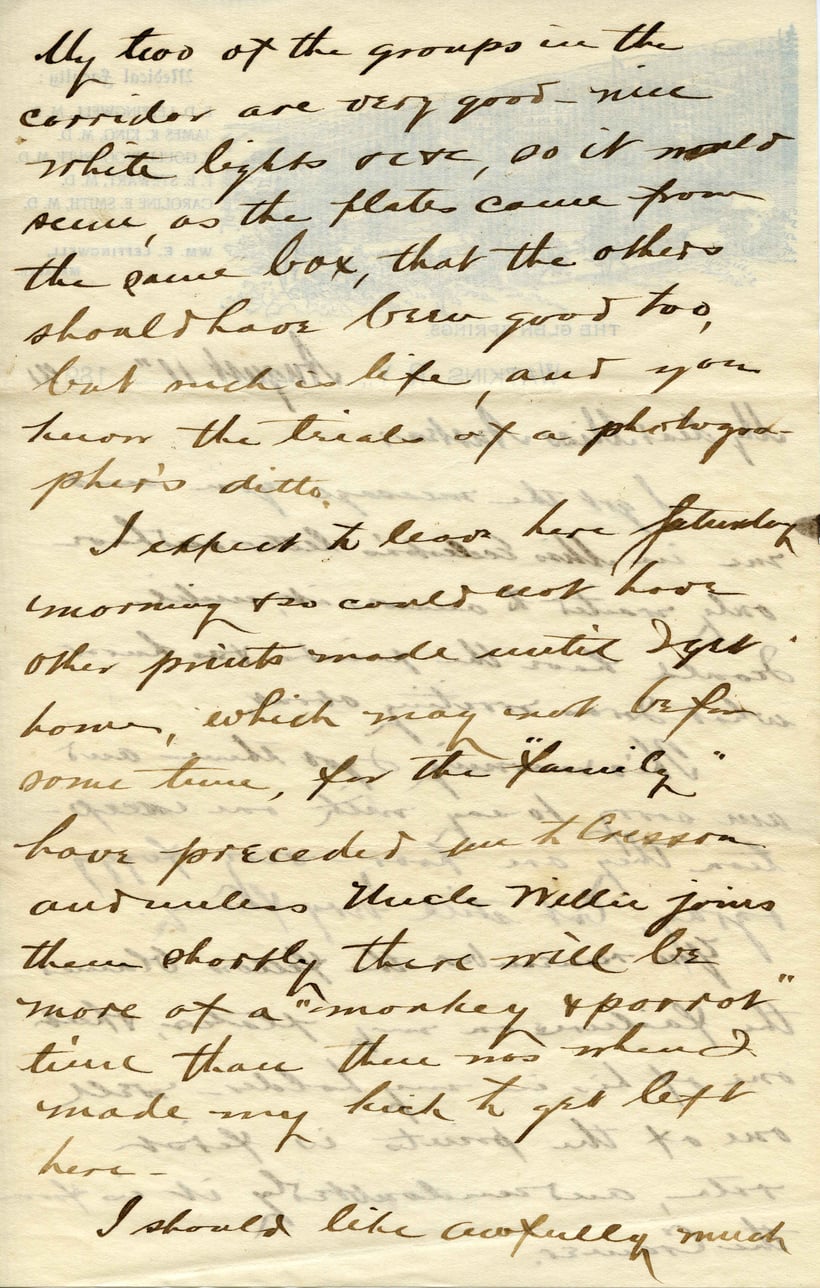 My two of the groups in the
corridor are very good - nice
white lights &c &c, so it would
seem, as the plates came from
the same box, that the others
should have been good too,
but such is life, and you
know the trials of a photogra-
pher's ditto.
I expect to leave here Saturday
morning & so could not have
other prints made until I get
home, which may not be for
some time, for the "family"
have preceded me to Cresson
and unless Uncle Willie joins
them shortly there will be
more of a "monkey & parrot"
time than there was when I
made my kick to get left
here -
I should like awfully much